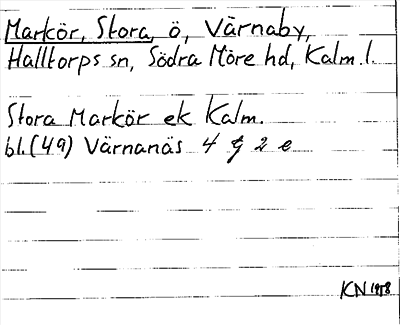 Markör, Stora, ö, Värnaby,
Halltorps sn, Södra Möre hd, Kalm. l.
Stora Markör ek Kalm.
bl. (49) Värnanäs 4 g 2 e
KN 1958